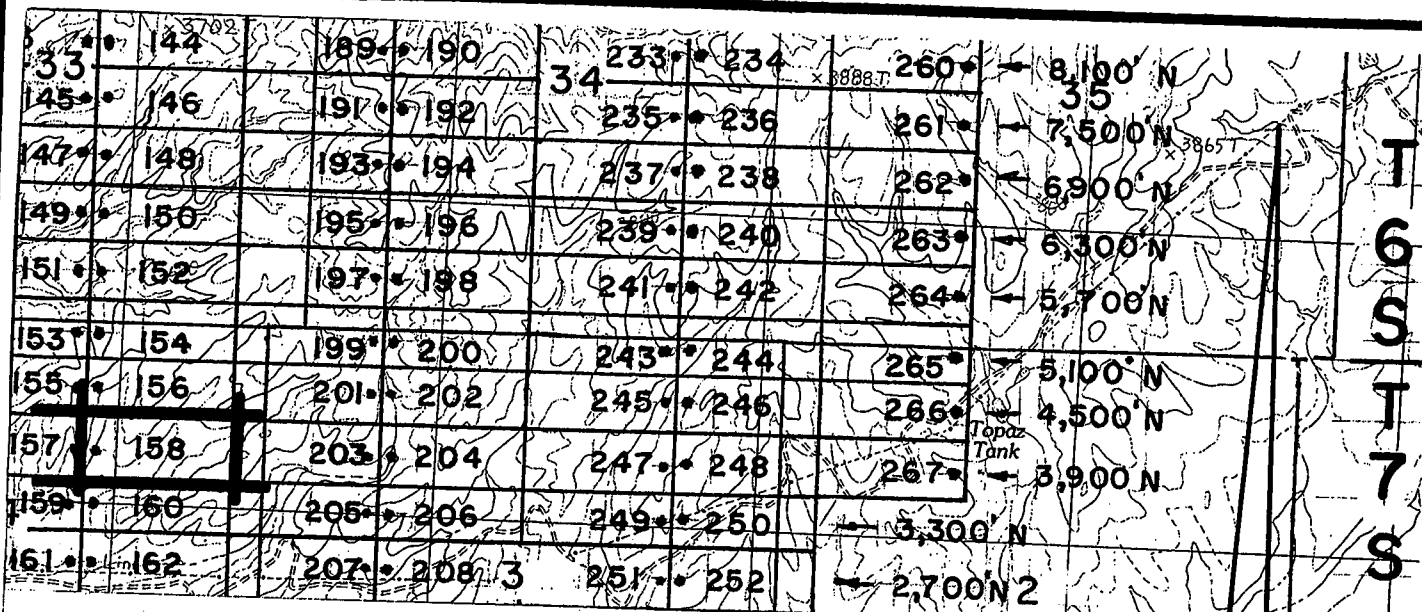 3702
144 189 190 233 234 260 8,100' N
33 34 3888T 35
145 146 191 192 235 236 261 7,500'N
3865T
147 148 193 194 237 238 262 6,900'N
149 150 195 196 239 240 263 6,300'N
151 152 197 198 241 242 264 5,700'N
153 154 199 200 243 244 265 5,100' N
155 156 201 202 245 246 266 4,500'N
Topaz
Tank
157 158 203 204 247 248 267 3,900'N
159 160 205 206 249 250 3,300' N
161 162 207 208 3 251 252 2,700'N 2
T
6
S
T
7
S